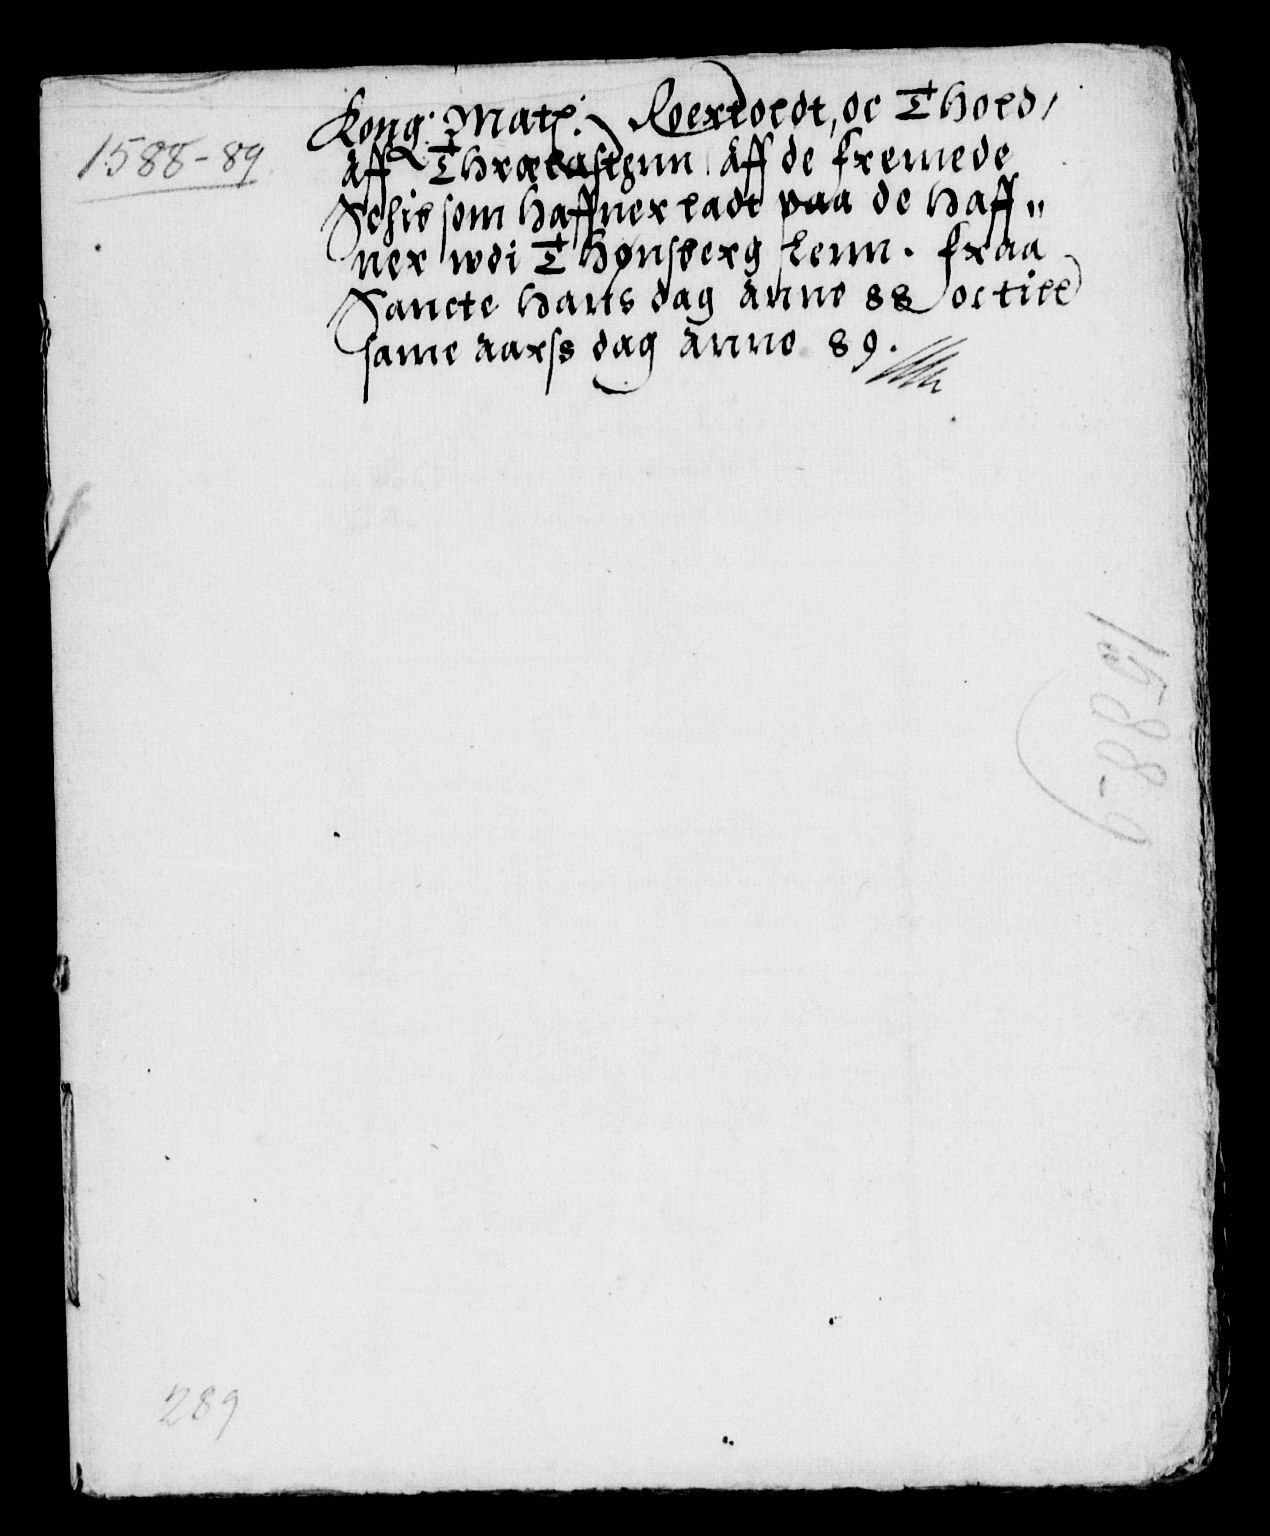 1588-89
Kong: Matz: Roertoldt, oc Thold,
aff Thrælastenn aff de fremede
Schib som haffner ladt paa de haff„
ner wdi Thønsberg lenn. fraa
Sancte Hans dag anno 88 oc till
same aarss dag anno 89.
1588-9
289